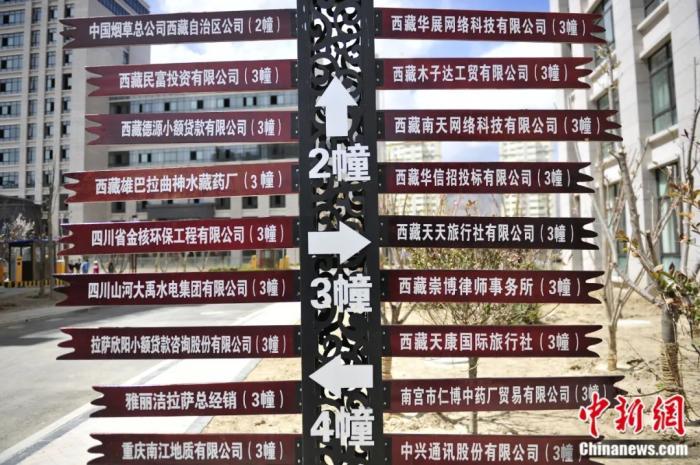 中国烟草总公司西藏自治区公司（2幢）
西藏民富投资有限公司（3幢）
西藏德源小额贷款有限公司（3幢）
西藏雄巴拉曲神水藏药厂（3幢）
四川省金核环保工程有限公司（3幢）
四川山河大禹水电集团有限公司（3幢）
拉萨欣阳小额贷款咨询股份有限公司（3幢）
雅丽洁拉萨总经销（3幢）
重庆南江地质有限公司（3幢）
2幢
3幢
4幢
西藏华展网络科技有限公司（3幢）
西藏木子达工贸有限公司（3幢）
西藏南天网络科技有限公司（3幢）
西藏华信招投标有限公司（3幢）
西藏天天旅行社有限公司（3幢）
西藏崇博律师事务所（3幢）
西藏天康国际旅行社（3幢）
南宫市仁博中药厂贸易有限公司（3幢）
中兴通讯股份有限公司（3幢）
中新网
Chinanews.com
中新网
Chinanews.com